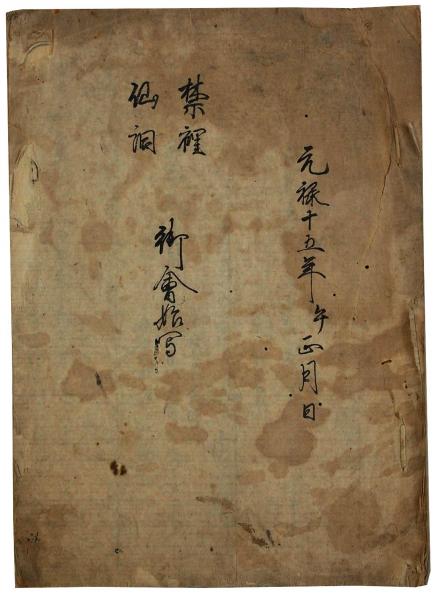 元禄十五年午正月日
禁裡
仙洞
御會始写